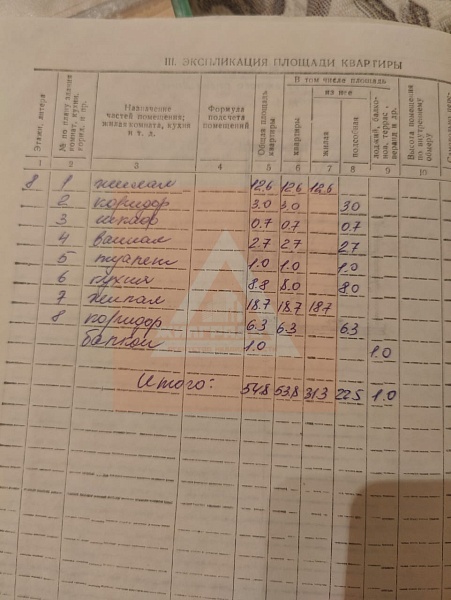 III. ЭКСПЛИКАЦИЯ ПЛОЩАДИ КВАРТИРЫ
Этажи, литера
№ по плану здания комнат, кухни, коридора и пр.
Назначение частей помещения; жилая комната, кухня и т. д.
Формула подсчета помещений
Общая площадь квартиры
В том числе площадь
квартиры
из нее
жилая
подсобная
лоджий, балконов, террас, веранд и др.
Высота помещения по внутреннему обмеру
1 2 3 4 5 6 7 8 9 10
8 1 жилая 12.6 12.6 12.6
2 коридор 3.0 3.0 3.0
3 шкаф 0.7 0.7 0.7
4 ванная 2.7 2.7 2.7
5 туалет 1.0 1.0 1.0
6 кухня 8.8 8.0 8.0
7 жилая 18.7 18.7 18.7
8 коридор 6.3 6.3 6.3
балкон 1.0 1.0
Итого: 54.8 53.8 31.3 22.5 1.0